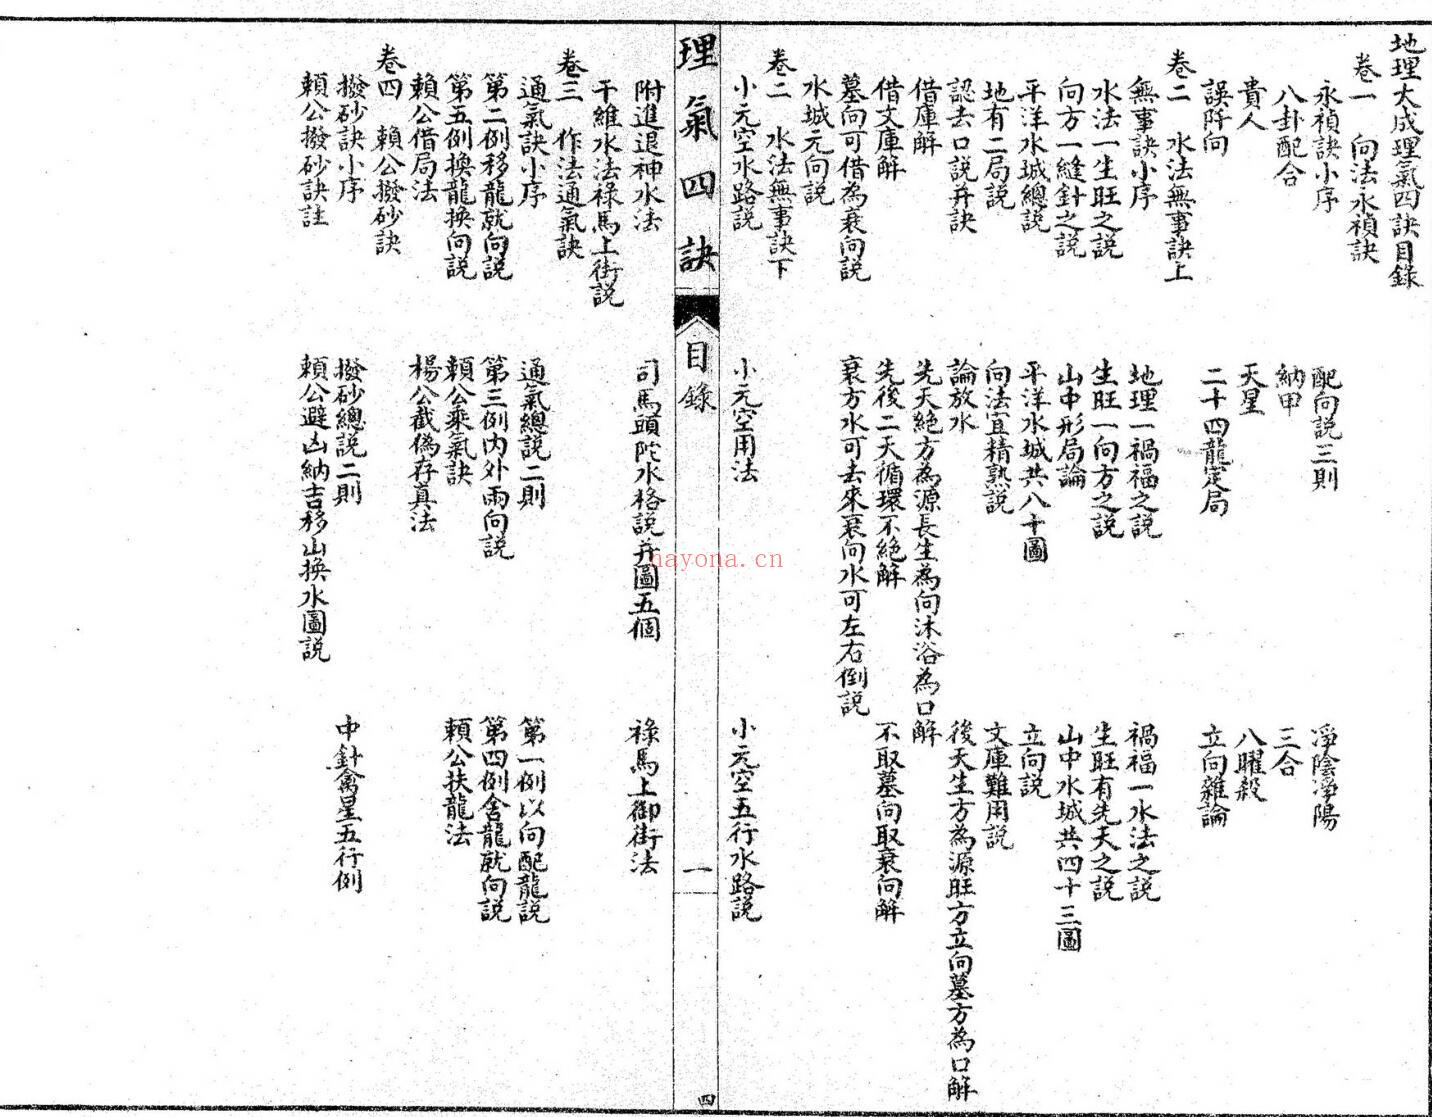 地理大成理氣四訣目錄
卷一　向法永禎訣
永禎訣小序　配向説三則　淨陰淨陽
八卦配合　納甲　三合
貴人　天星　八曜殺
誤阡向　二十四龍定局　立向雜論
卷二　水法無事訣上
無事訣小序　地理一禍福之説　禍福一水法之説
水法一生旺之説　生旺一向方之説　生旺有先天之説
向方一縫針之説　山中形局論　山中水城共四十三圖
平洋水城總説　平洋水城共八十圖　立向説
地有二局説　向法宜精熟説　文庫難用説
認去口説并訣　論放水　後天生方為源旺方立向墓方為口解
借庫解　先天絕方為源長生為向沐浴為口解
借文庫解　先後二天循環不絕解　不取墓向取衰向解
墓向可借為衰向説　衰方水可去來衰向水可左右倒説
水城元向説
卷二　水法無事訣下
小元空水路説　小元空用法　小元空五行水路説
理氣四訣　目錄　一　四
附進退神水法　司馬頭陀水格説并圖五個　祿馬上御街法
干維水法祿馬上街説
卷三　作法通氣訣
通氣訣小序　通氣總説二則　第一例以向配龍説
第二例移龍就向説　第三例內外兩向説　第四例舍龍就向説
第五例換龍換向説　賴公乘氣訣　賴公扶龍法
賴公借局法　楊公截偽存真法
卷四　賴公撥砂訣
撥砂訣小序　撥砂總説二則　中針禽星五行例
賴公撥砂訣註　賴公避凶納吉移山換水圖説
nayona.cn